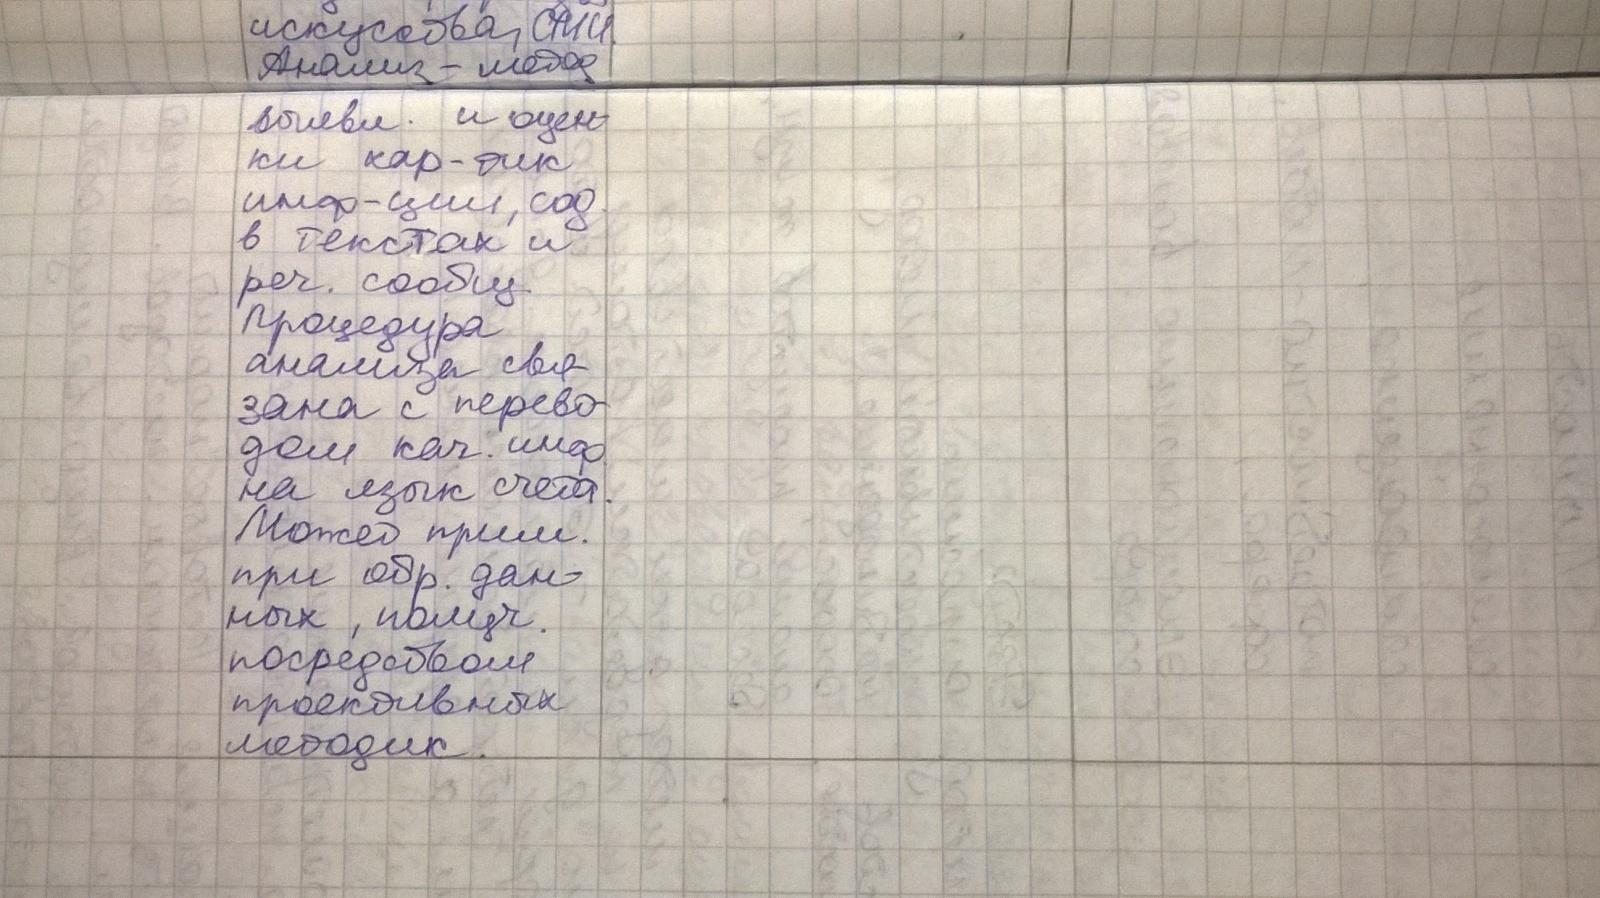 искусства, СМИ.
Анализ - метод
выявл. и оцен-
ки хар-тик
инф-ции, сод.
в текстах и
реч. сообщ.
Процедура
анализа свя-
зана с перево-
дом кач. инф.
на язык счета.
Может прим.
при обр. дан-
ных, получ.
посредством
проективных
методик.